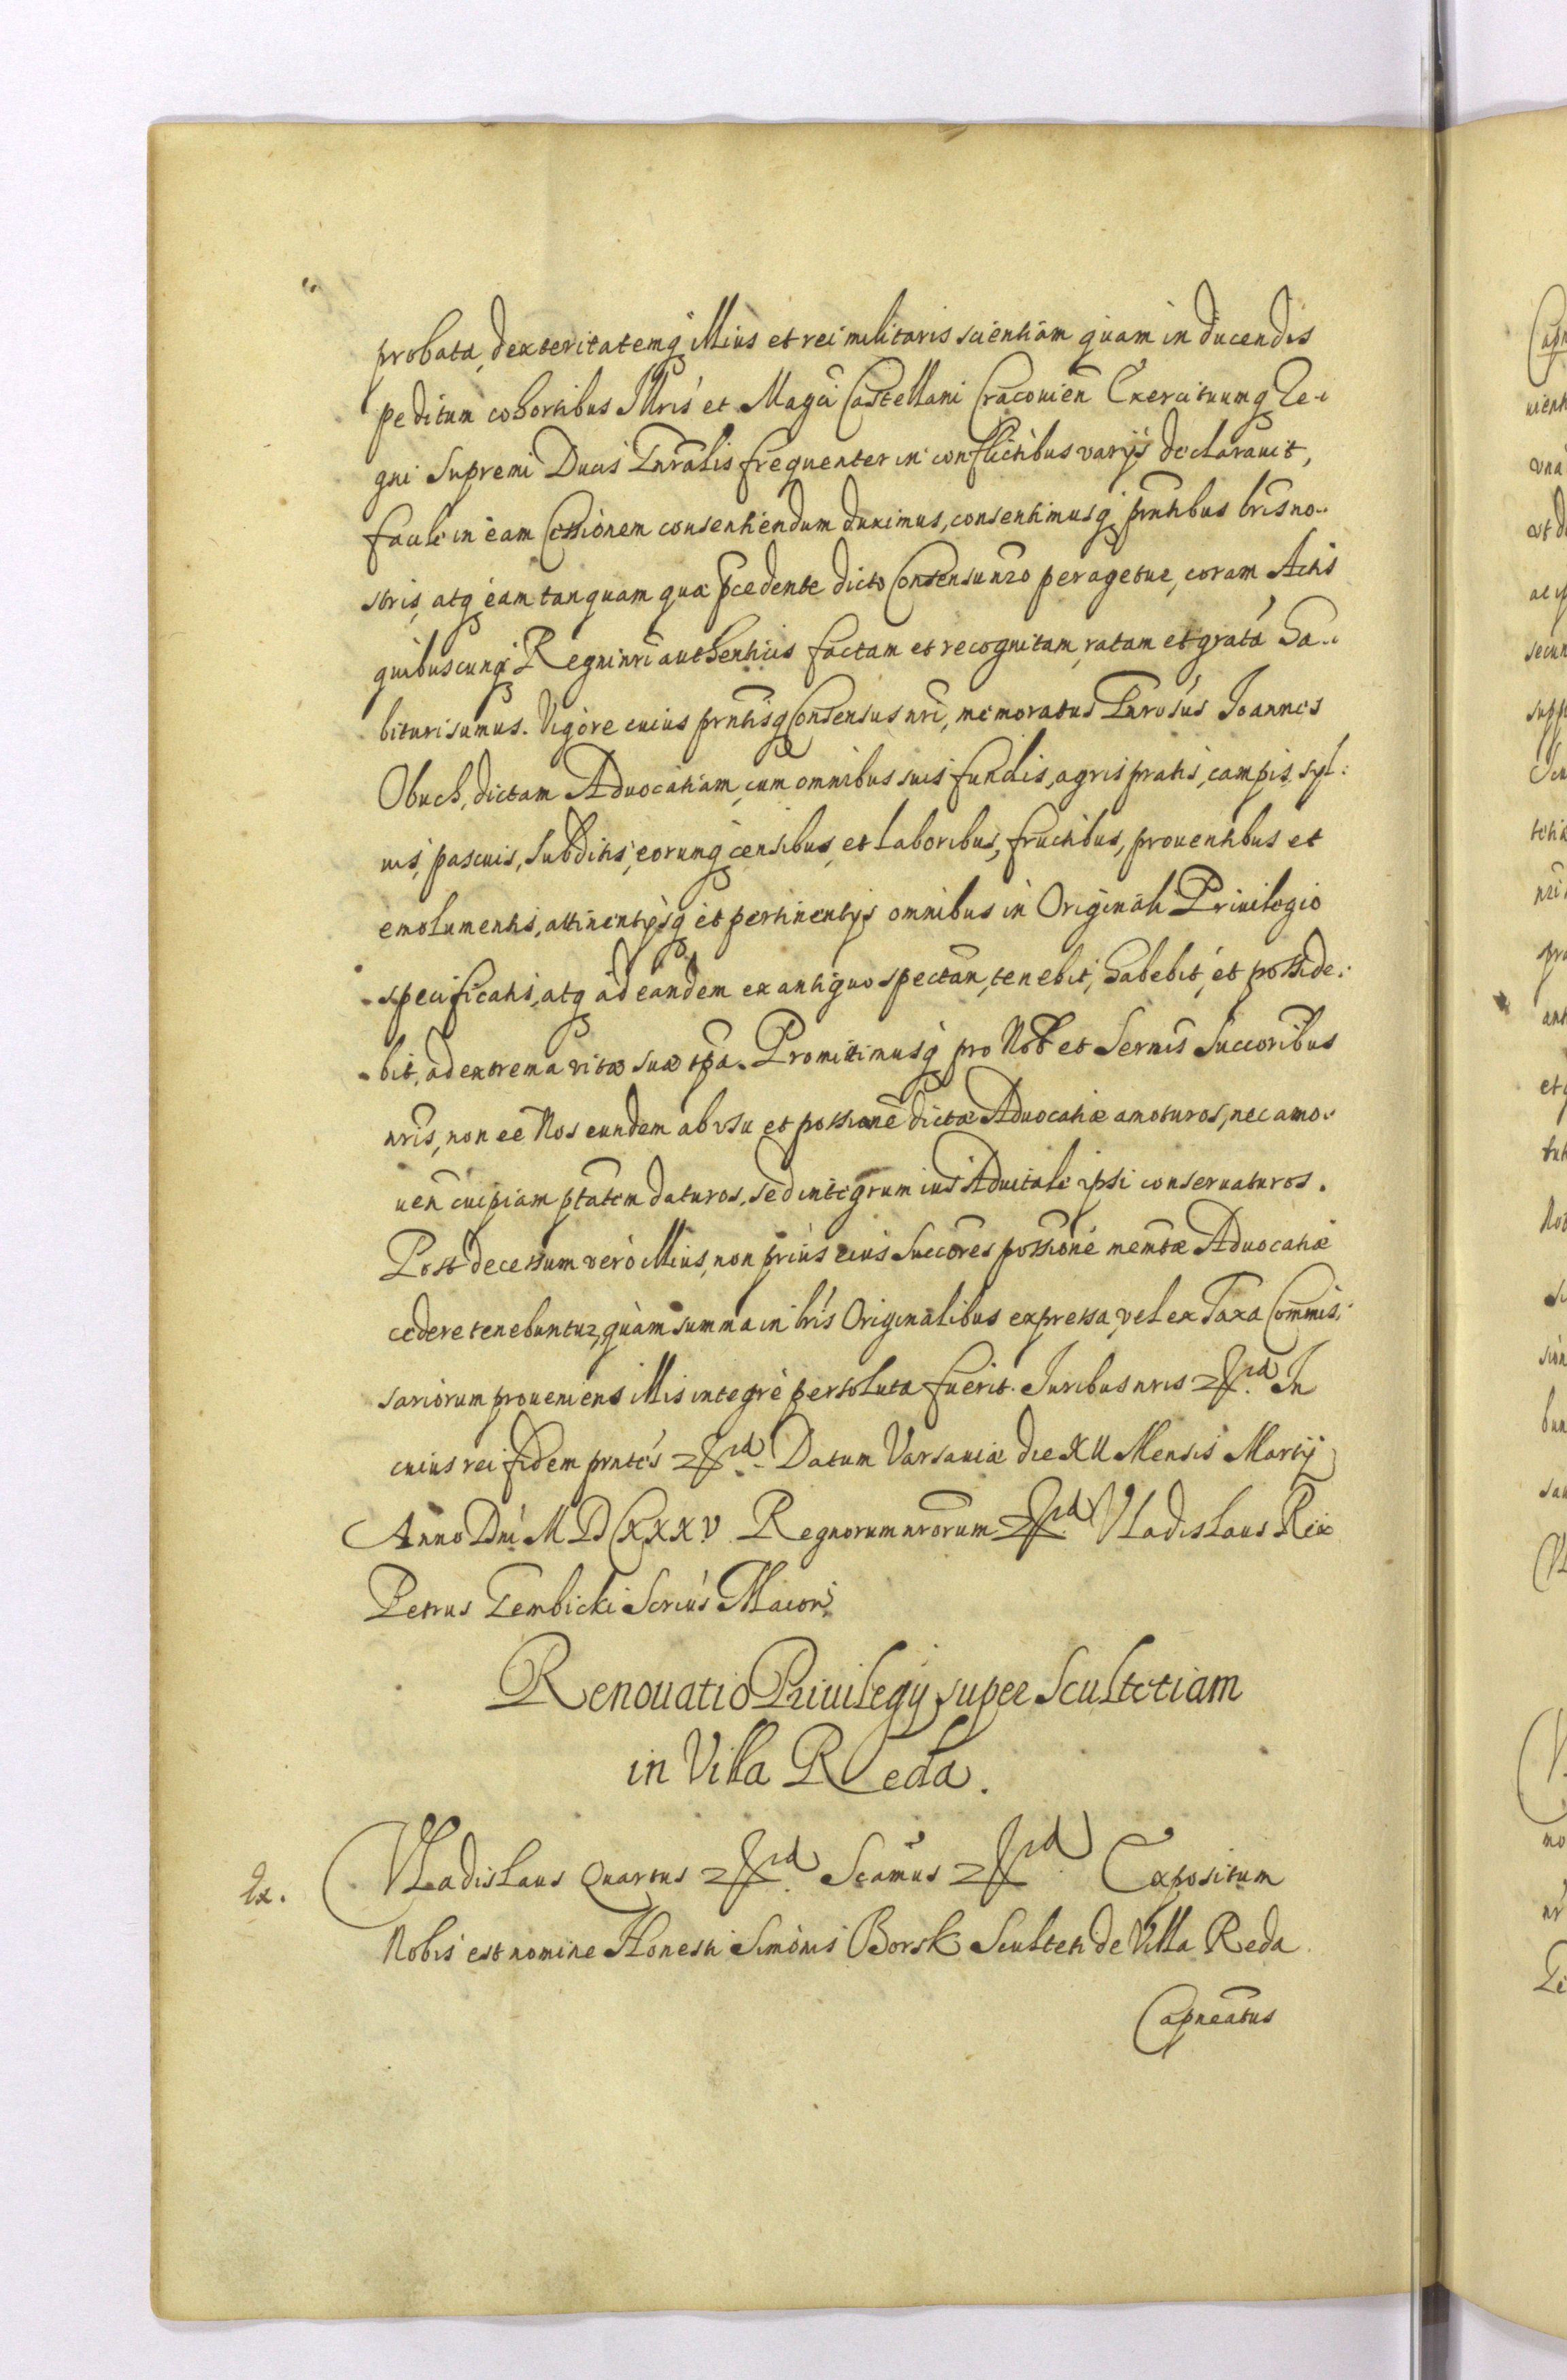 probata, dexteritatemq illius et rei militaris scientiam quam in ducendis
peditum cohortibus Illris et Magci Castellani Cracouien Exercituumq Re-
gni Supremi Ducis Gnralis frequenter in conflictibus varijs declarauit,
facile in eam Cessionem consentiendum duximus, consentimusq prntibus lris no-
stris, atq eam tanquam quæ pcedente dicto Consensu nro peragetur, coram Actis
quibuscunq Regni nri authenticis factam et recognitam, ratam et gratã ha-
bituri sumus. Vigore cuius prntisq Consensus nri, memoratus Gnrosus Joannes
Obuch, dictam Aduocatiam, cum omnibus suis fundis, agris pratis, campis, syl-
uis, pascuis, subditis, eorumq censibus, et laboribus, fructibus, prouentibus et
emolumentis, attinentijsq et pertinentijs omnibus in Originali Priuilegio
specificatis, atq ad eandem ex antiquo spectan, tenebit, habebit, et posside-
bit, ad extrema vitæ suæ tpa. Promittimusq pro Nob et Sernis Succoribus
nris, non eē Nos eundem ab vsu et possione dictæ Aduocatiæ amoturos, nec amo-
uen cuipiam ptatem daturos, sed integrum ius Aduitale ipsi conseruaturos.
Post decessum vero illius, non prius eius Succores possione memtæ Aduocatiæ
cedere tenebuntur, quàm summa in lris Originalibus expressa, vel ex Taxa Commis-
sariorum proueniens illis integrè persoluta fuerit. Juribus nris &. In
cuius rei fidem prntes &. Datum Varsauiæ die XII Mensis Martij
Anno Dni MDCXXXV. Regnorum nrorum & Vladislaus Rex
Petrus Gembicki Scrius Maior.
Renouatio Priuilegij super Scultetiam
in Villa Reda.
Vladislaus Quartus &. Scamus & Expositum
Nobis est nomine Honesti Simonis Borsk Sculteti de Villa Reda
Capneatus